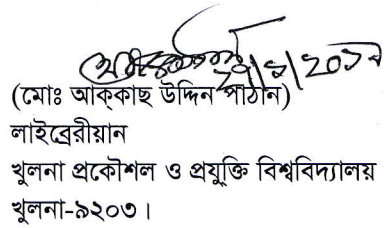 (মোঃ আক্কাছ উদ্দিন পাঠান)
লাইব্রেরীয়ান
খুলনা প্রকৌশল ও প্রযুক্তি বিশ্ববিদ্যালয়
খুলনা-৯২০৩।